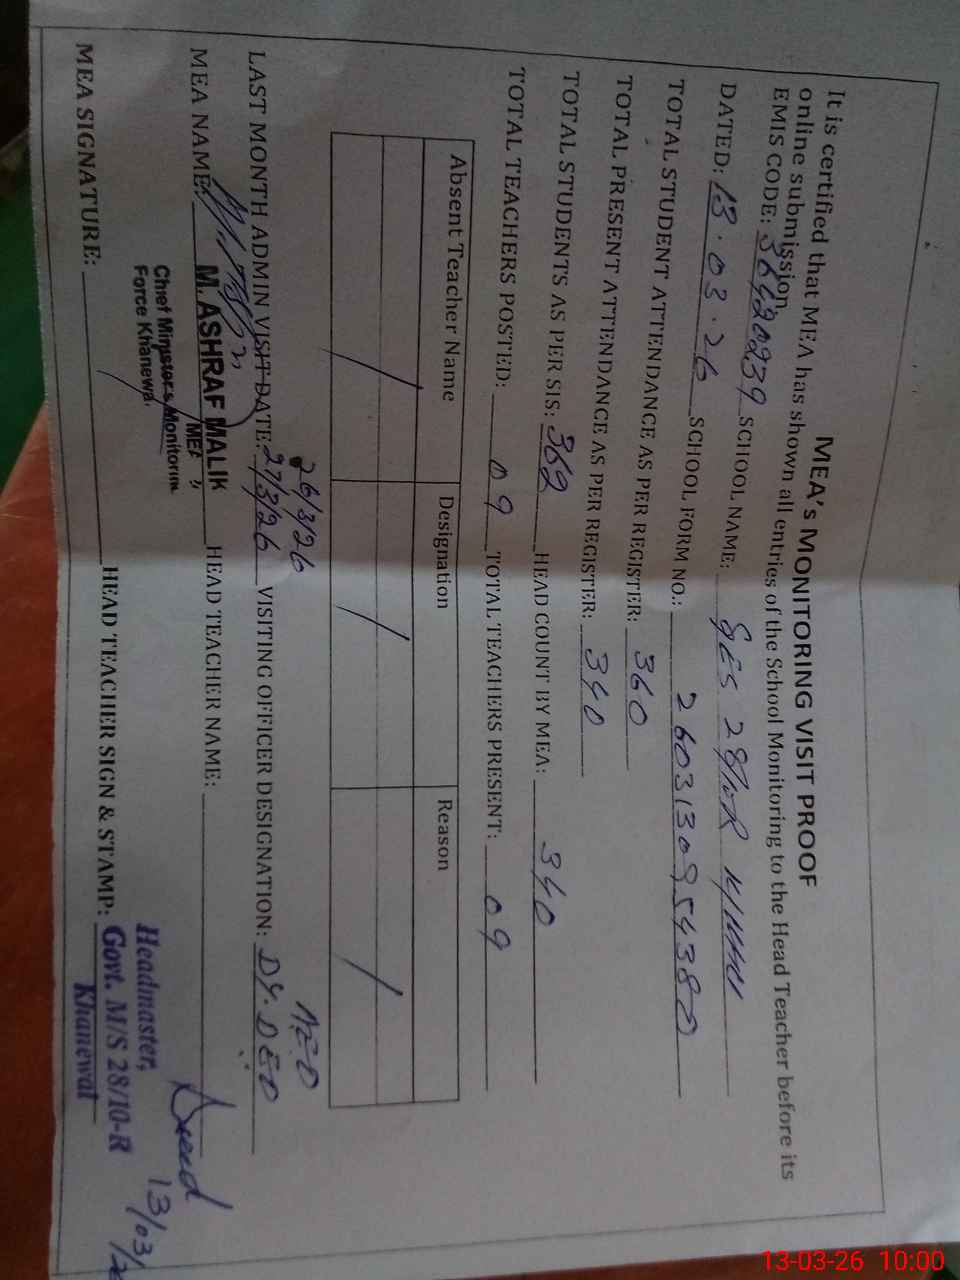 MEA's MONITORING VISIT PROOF
It is certified that MEA has shown all entries of the School Monitoring to the Head Teacher before its
online submission
EMIS CODE: 36420239 SCHOOL NAME: GES 28/10R
DATED: 13.03.26 SCHOOL FORM NO.: 2603130954380
TOTAL STUDENT ATTENDANCE AS PER REGISTER: 360
TOTAL PRESENT ATTENDANCE AS PER REGISTER: 340
TOTAL STUDENTS AS PER SIS: 369 HEAD COUNT BY MEA: 340
TOTAL TEACHERS POSTED: 09 TOTAL TEACHERS PRESENT: 09
Absent Teacher Name Designation Reason
/ / /
26/3/26 AEO
LAST MONTH ADMIN VISIT DATE: 27/3/26 VISITING OFFICER DESIGNATION: DY. DEO
MEA NAME: M. ASHRAF MALIK HEAD TEACHER NAME:
MEA
Chief Minister's Monitoring
Force Khanewal
MEA SIGNATURE: HEAD TEACHER SIGN & STAMP:
Headmaster,
Govt. M/S 28/10-R
Khanewal
13/03/
13-03-26 10:00